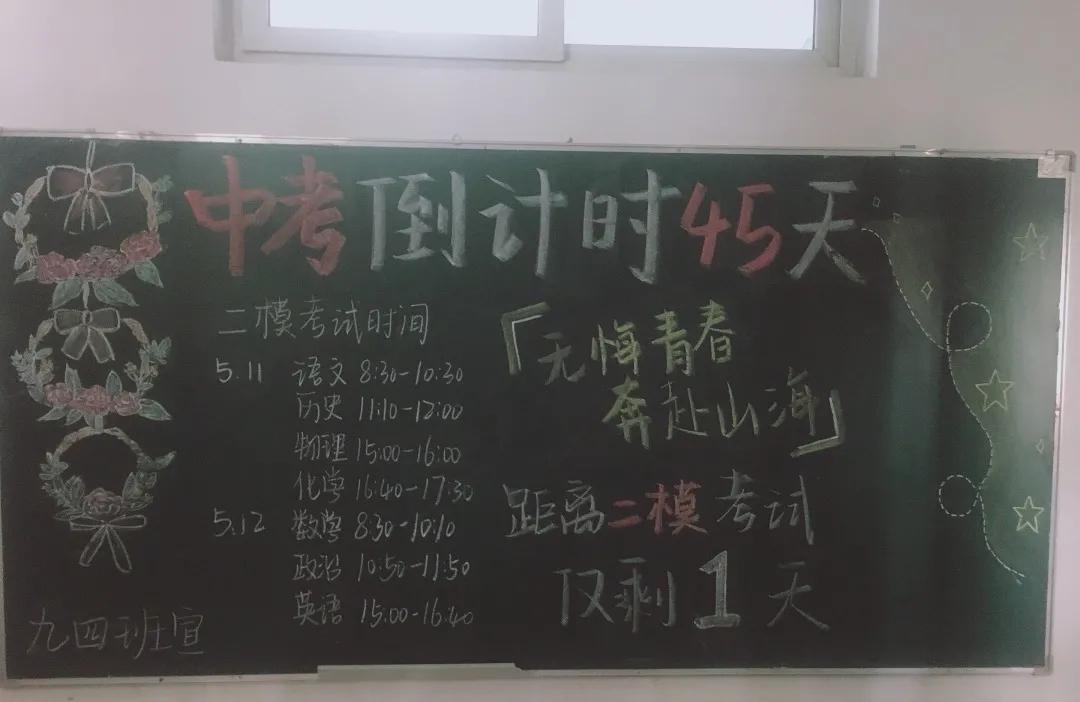 中考倒计时45天
二模考试时间
5.11 语文 8:30-10:30
历史 11:10-12:00
物理 15:00-16:00
化学 16:40-17:30
5.12 数学 8:30-10:10
政治 10:50-11:50
英语 15:00-16:40
「无悔青春
奔赴山海」
距离二模考试
仅剩1天
九四班宣